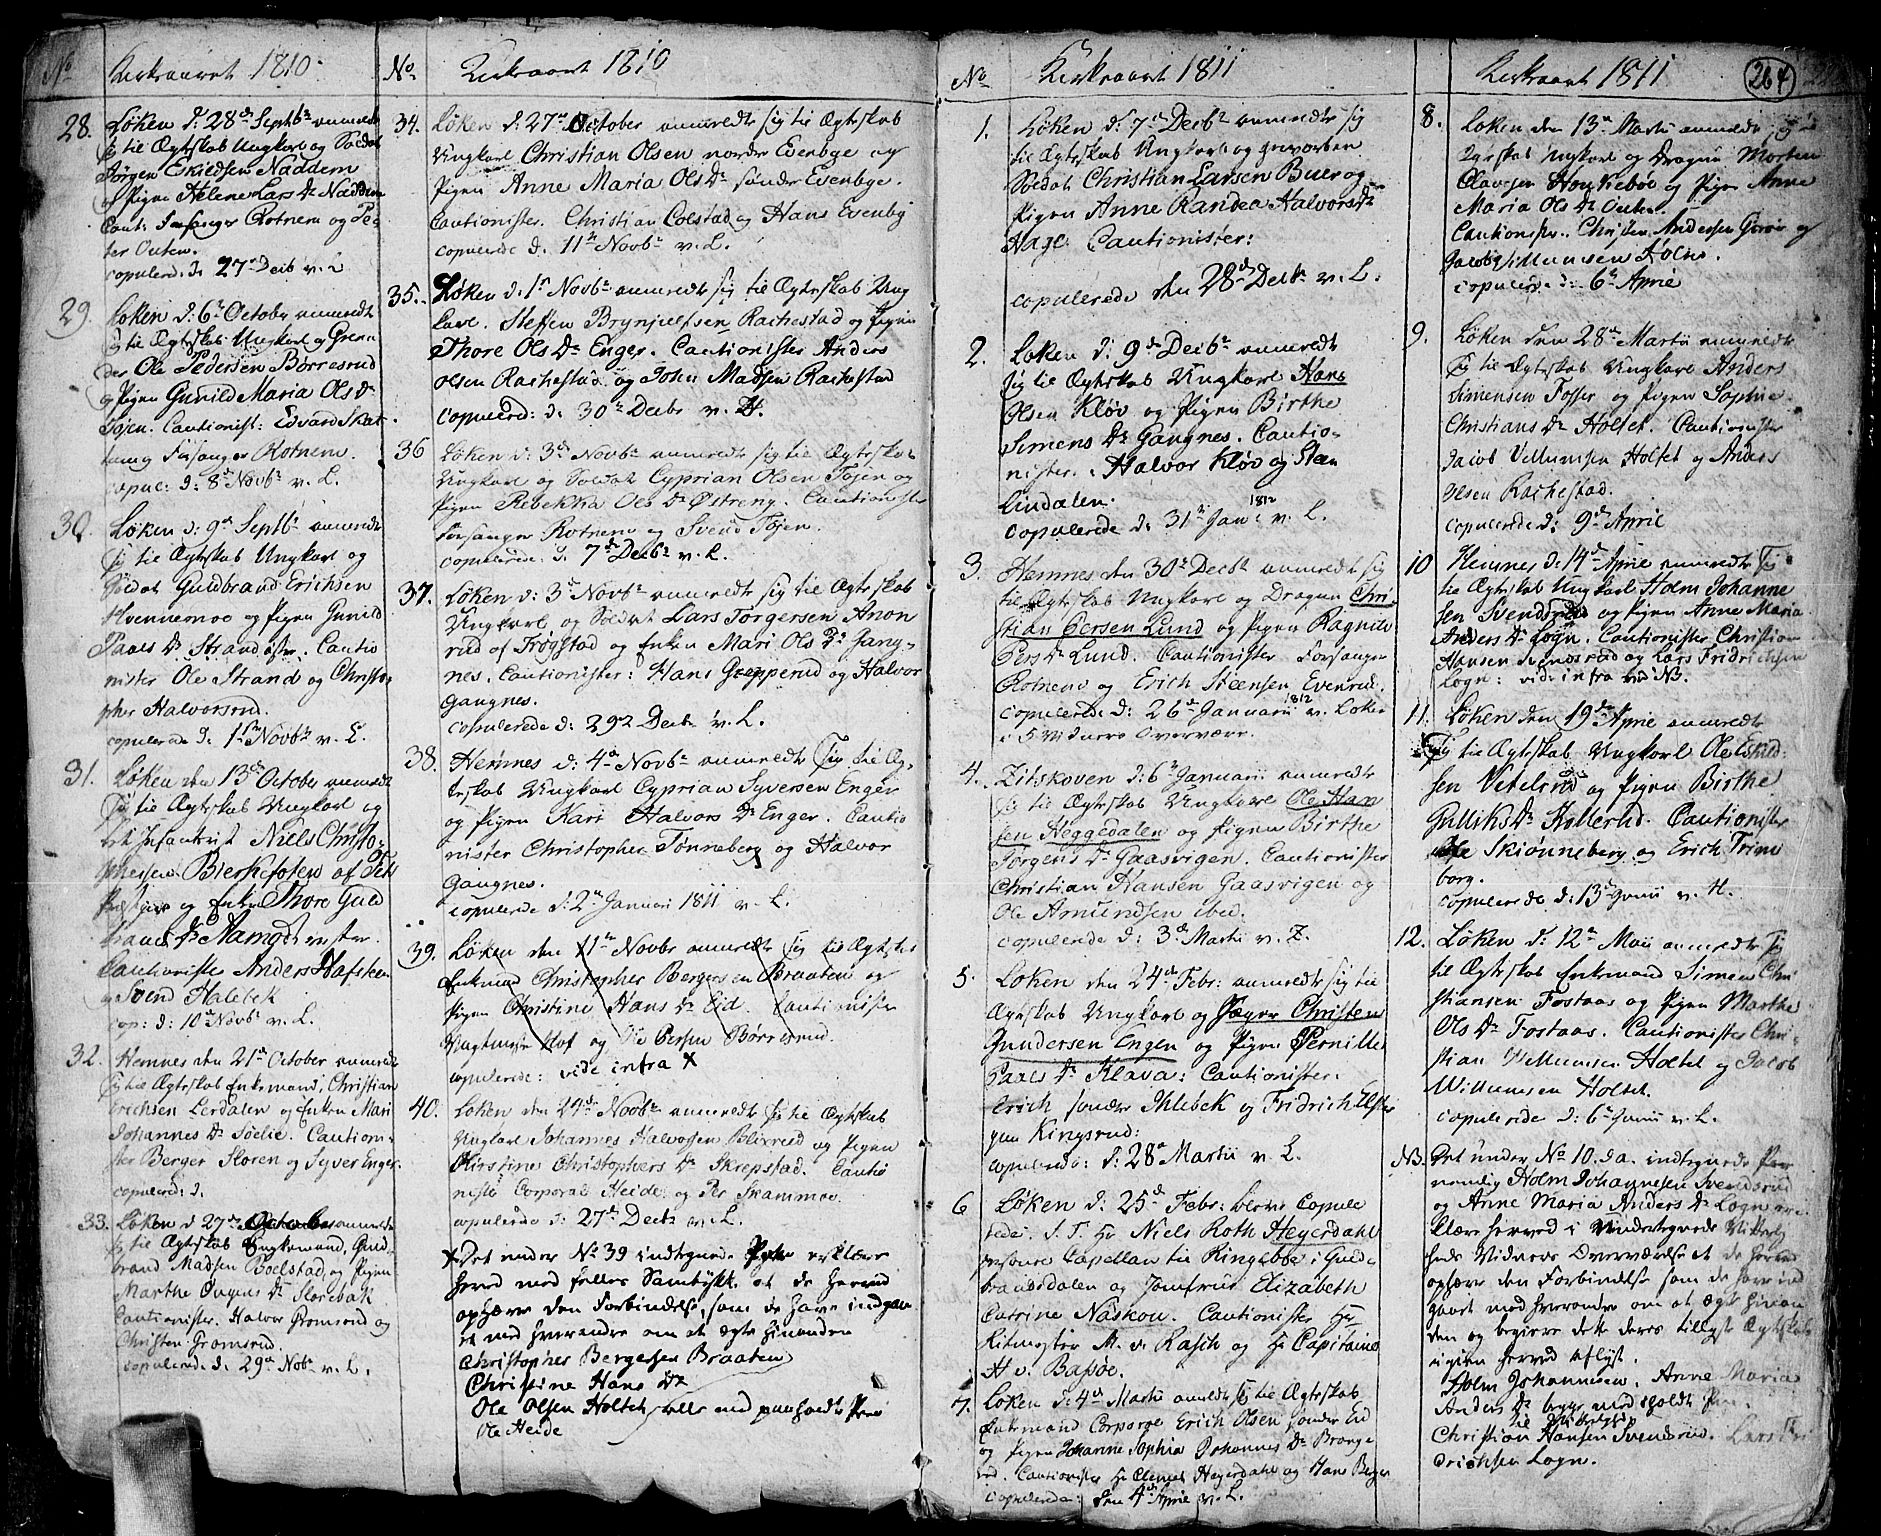 No Kirkeaaret 1810.
28. Løken d: 28de Septbr anmeldte
sig til Ægteskab Ungkarl og Soldat
Jørgen Eskildsen Naddem
og Pigen Helene Lars Dr Naddem
Caut: Forsanger Rotnem og Pe-
ter Outen.
copulered: d: 27de Decb v. L
29. Løken d: 6te October anmeldte
sig til Ægteskab Ungkarl og Grena-
der Ole Pedersen Børresrud
og Pigen Gunild Maria Ols Dr
Tøjen. Cautionist: Edvard Skat-
og Forsanger Rotnem.
copul: d: 8de Novbr v. L.
30. Løken d: 9de Septbr anmeldte
sig til Ægteskab Ungkarl og
Soldat Guldbrand Erichsen
Hvennemoe og Pigen Gunild
Paals Dr Strand østre. Cautio
nister Ole Strand og Christo-
pher Halvorsrud.
copulerede d: 1ste Novbr v. L.
31. Løken den 13de October anmeldte
sig til Ægteskab Ungkarl og
Infanterist Niels Christo-
phersen Bierkefoten af
og Enken Thore Guld
brands Dr
Cautionister Anders Hafsteen
og Svend Halebek
cop: d: 10de Novbr v. L.
32. Hemnes den 21de October anmeldte
sig til Ægteskab Enkemand Christian
Erichsen Lerdalen og Enken Mari
Johannes Dr Søelie. Cautioni-
ster Berger Sloren og Syver Enger.
copulered: d.
33. Løken d 27de October anmeldte
sig til Ægteskab Enkemand Guld-
brand Madsen Boelstad og Pigen
Marthe Ingens Dr Slorebak
Cautionister. Halvor Gromsrud og
Christen Gromsrud
copulered: d. 29de Novbr v. L.
No Kirkeaaret 1810
34. Løken d: 27de October anmeldte sig til Ægteskab
Ungkarl Christian Olsen nordre Evenbye og
Pigen Anne Maria Ols Dr søndre Evenbye.
Cautionister. Christian Colstad og Hans Evenby
copulerede d. 11te Novbr v. L.
35. Løken d. 1ste Novbr anmeldte sig til Ægteskab Ung
karl. Steffen Brynjulfsen Rachestad og Pigen
Thore Ols Dr Enger. Cautionister Anders
Olsen Rachestad og John Madsen Rachestad
copulered: d. 30te Decbr v. H.
36 Løken d: 3de Novbr anmeldte sig til Ægteskab
Ungkarl og Soldat Cyprian Olsen Tøjen og
Pigen Rebekka Ols Dr Østreng. Cautionister
Forsanger Rotnem og Svend Tøjen.
copulerede d. 7de Decbr v. L.
37. Løken d: 3de Novbr anmeldte sig til Ægteskab
Ungkarl og Soldat Lars Torgersen Anon
rud af Trøgstad og Enken Mari Ols Dr Gang-
nes. Cautionister: Hans Grepperud og Halvor
Gangnes.
copulerede d: 29de Decbr v. L.
38. Hemnes d: 4de Novbr anmeldte sig til Æg-
teskab Ungkarl Cyprian Syversen Enger
og Pigen Kari Halvors Dr Enger. Cautio
nister Christopher Tønneberg og Halvor
Gangnes.
copulerede d. 2de Januari 1811 v. L.
39. Løken den 11te Novbr anmeldte sig til Ægteskab
Enkemand Christopher Bergersen Braaten og
Pigen Christine Hans Dr Eid. Cautionister
Vagtmester Hof og Ole Persen Børresrud.
copulerede: vide infra X
40. Løken den 24de Novbr anmeldte sig til Ægteskab
Ungkarl Johannes Halvorsen Blixrud og Pigen
Kirstine Christophers Dr Skrepstad. Cautio
nister Corporal Heide og Per Skammoe.
copulerede d: 27de Decbr v. L.
X Det under No 39 indtegnede Par erklære
herved med felles Samtykke at de herved
ophæve den Forbindelse, som de have indgaa-
et med hverandre om at ægte hinanden
Christopher Bergersen Braaten
Christine Hans Dr
Ole Olsen Holtet alle med paaholdt Pen
Ole Heide
No Kirkeaaret 1811
1. Løken d: 7de Decbr anmeldte sig
til Ægteskab Ungkarl og hvorben
Soldat Christian Larsen Buer og
Pigen Anne Randea Halvors Dr
Hage. Cautionister:
copulerede den 28de Decbr v. L.
2. Løken d: 9de Decbr anmeldte
sig til Ægteskab Ungkarl Hans
Olsen Kløv og Pigen Birthe
Simens Dr Gangnes. Cautio-
nister. Halvor Kløv og Sten
Lindalen.
copulerede d: 31te Jan: 1812 v. L.
3. Hemnes den 30te Decbr anmeldte sig
til Ægteskab Ungkarl og Dragon Chri-
stian Persen Lund og Pigen Ragnild
Pers Dr Lund. Cautionister Forsanger
Rotnem og Erich Steensen Evenrud.
copulerede d: 26de Januari 1812 v. Løken
i 5 Vidners Overvære.
4. Zitskoven d: 6te Januari anmeldte
sig til Ægteskab Ungkarl Ole Han
sen Heggedalen og Pigen Birthe
Jørgens Dr Gaasvigen. Cautionister
Christian Hansen Gaasvigen og
Ole Amundsen ibed.
copulerede d: 3de Martii v. Z.
5. Løken den 24de Febr: anmeldte sig til
Ægteskab Ungkarl og Jæger Christen
Gundersen Engen og Pigen Pernille
Paals Dr Klava: Cautionister.
Erich søndre Ihlebek og Fridrich
Kingsrud:
copulerede: d: 28de Martii v. L.
6 Løken d: 25de Febr: bleve Copule
rede. S. T. Hr Niels Roth Heyerdahl
personel Capellan til Ringeboe i Guld-
brandsdalen og Jomfrue Elizabeth
Catrine Naskou. Cautionister Hr
Ritmester M. v. Rasch og Hr Capitaine
H v: Bassøe.
7. Løken d: 4de Martii anmeldte sig til Ægteskab
Enkemand Corporal Erich Olsen søndre Eid
og Pigen Johanne Sophia Johannes Dr Brange
rud. Cautionister Hr Clemet Heyerdahl og Hans Berger
copulerede: den 4de Aprile v. L.
Kirkeaaret 1811 264
8. Løken den 13de Martii anmeldte sig til
Ægteskab Ungkarl og Dragon Morten
Olavesen Haukebøe og Pigen Anne
Maria Ols Dr Outen.
Cautionister. Christen Andersen og
Jacob Willumsen Holtet.
copulerede d: 6te Aprile
9. Løken den 28de Martii anmeldte
sig til Ægteskab Ungkarl Anders
Simensen Fosser og Pigen Sophie
Christians Dr Holtet. Cautionister
Jacob Vellumsen Holtet og Anders
Olsen Rachestad.
copulerede d: 9de Aprile
10 Hemnes d. 14de Aprile anmeldte sig
til Ægteskab Ungkarl Holm Johanne
sen Svendsrud og Pigen Anne Maria
Anders Dr Løgn. Cautionister Christian
Hansen Svendsrud og Lars Fridrichsen
Løgn: vide infra ved NB.
11. Løken den 19de Aprile anmeldte
sig til Ægteskab Ungkarl Ole Eskild-
sen Vetelrud og Pigen Birthe
Gulliks Dr Kollerud. Cautionister
Ole Skiønneberg og Erich Trim
borg.
copulerede d: 13de Junii v. H.
12. Løken d: 12te Maii anmeldte sig
til Ægteskab Enkemand Simen Chri
stiansen Fostaas og Pigen Marthe
Ols Dr Fostaas. Cautionister Chri-
stian Willumsen Holtet og Jacob
Willumsen Holtet.
copulerede d: 6te Junii v. L.
NB. Det under No 10 d.a. indtegnede Par
nemlig Holm Johannesen Svendsrud
og Anne Maria Anders Dr Løgn er-
klære herved i Undertegnede Vitterlig
heds Vidners Overværelse at de herved
ophæve den Forbindelse som de have ind
gaaet med hverandre om at ægte hinan
den og begiere dette deres tillyste Ægteskab
igien herved aflyst.
Holm Johannesen, Anne Maria
Anders Dr begge med iholdt Pen.
Til Vitterlighed
Christian Hansen Svendsrud. Lars Fri
drichsen Løgn.